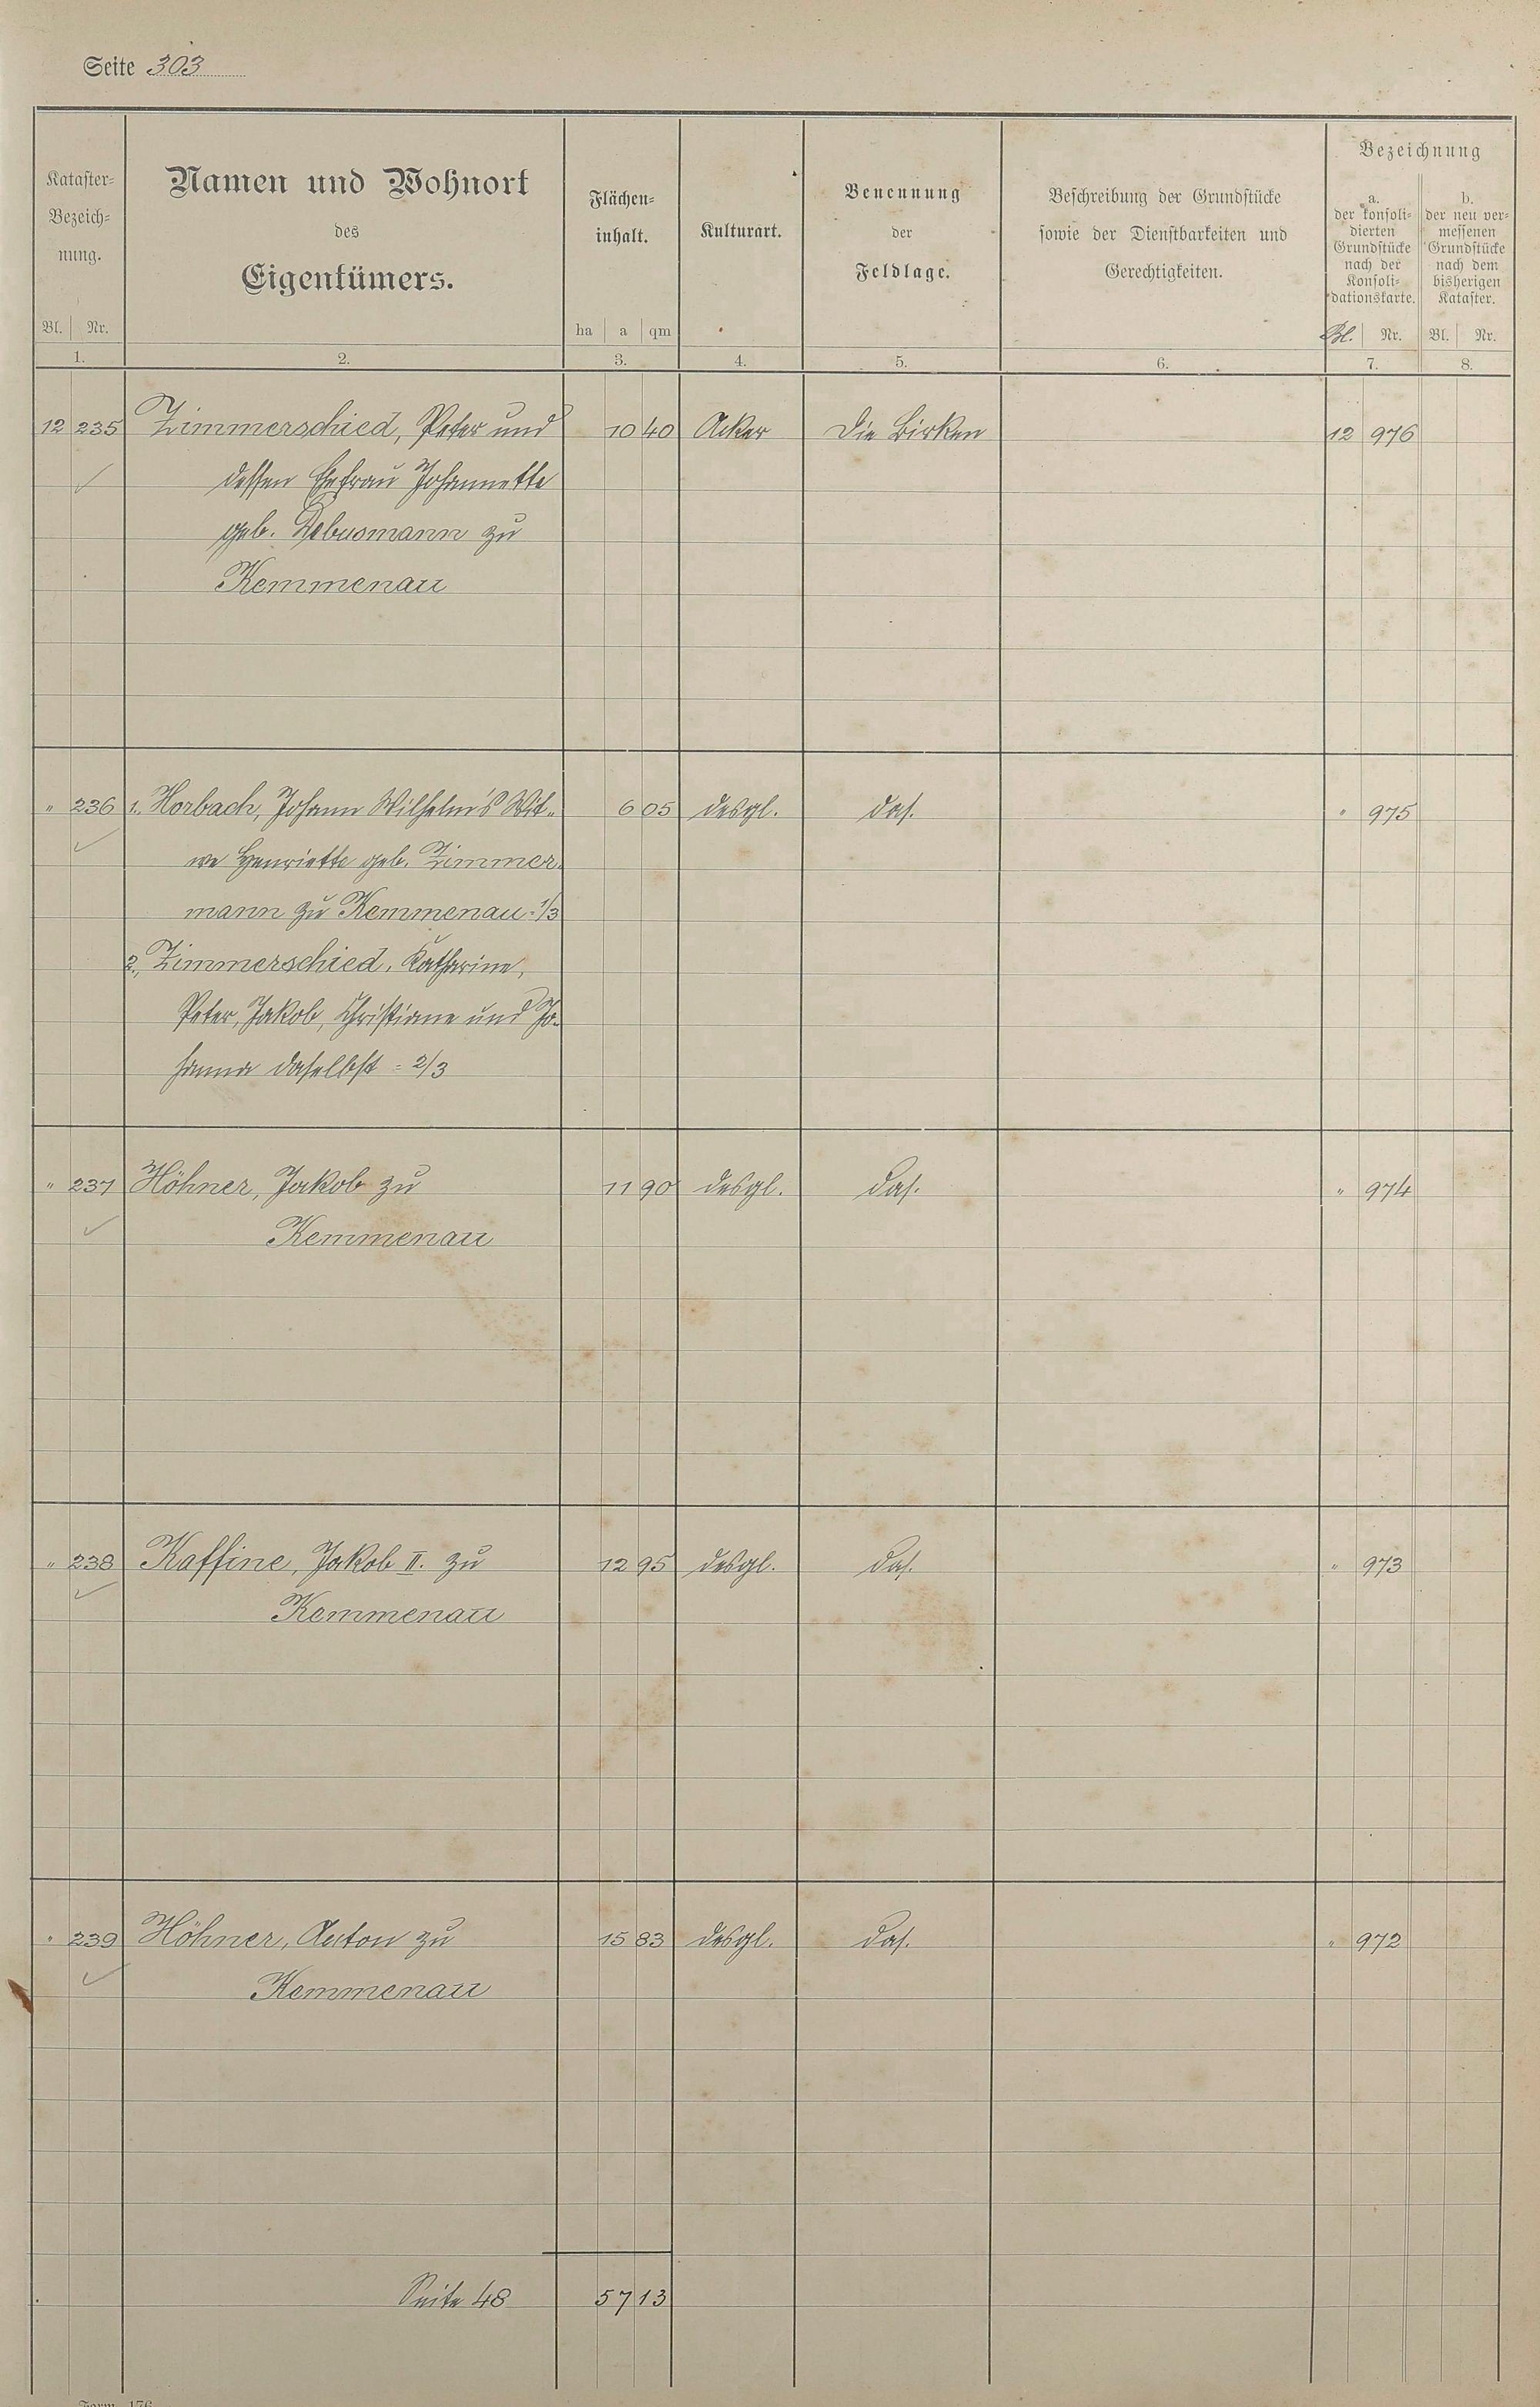 Seite 303
Kataster=
Bezeich=
nung.
Bl. Nr.
1.
Namen und Wohnort
des
Eigentümers.
2.
Flächen=
inhalt.
ha a qm
3.
Kulturart.
4.
Benennung
der
Feldlage.
5.
Beschreibung der Grundstücke
sowie der Dienstbarkeiten und
Gerechtigkeiten.
6.
Bezeichnung
a.
der konsoli=
dierten
Grundstücke
nach der
Konsoli=
dationskarte.
Bl. Nr.
7.
b.
der neu ver=
messenen
Grundstücke
nach dem
bisherigen
Kataster.
Bl. Nr.
8.
12 235 Zimmerschied, Peter und 10 40 Acker Die Birken 12 976
dessen Ehefrau Johannette
geb. Debusmann zu
Kemmenau
" 236 1. Horbach, Johann Wilhelm's Wit- 6 05 desgl. das. " 975
we Henriette geb. Zimmer-
mann zu Kemmenau = 1/3
2. Zimmerschied, Katharine,
Peter, Jakob, Christiane und Jo-
hanna daselbst = 2/3
" 237 Höhner, Jakob zu 11 90 desgl. das. " 974
Kemmenau
" 238 Kaffine, Jakob II. zu 12 95 desgl. das. " 973
Kemmenau
" 239 Höhner, Anton zu 15 83 desgl. das. " 972
Kemmenau
Seite 48 57 13
Form. 176